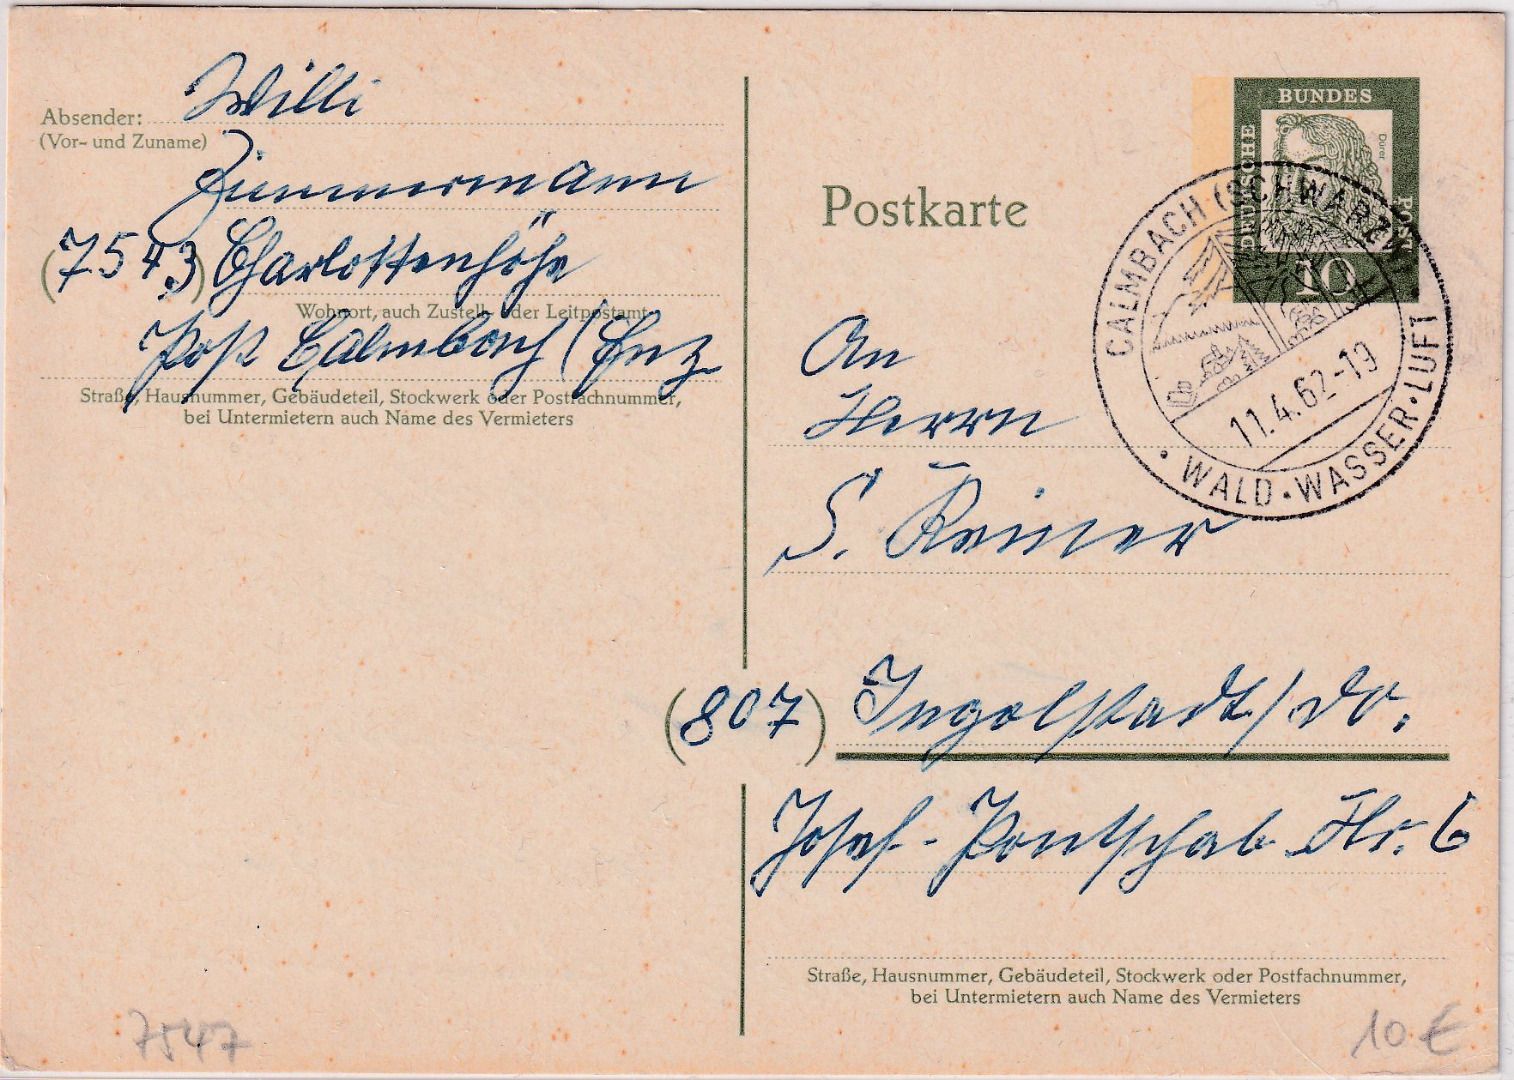 Absender: Willi
(Vor- und Zuname)
Zimmermann
(7543) Charlottenhöhe
Wohnort, auch Zustell- oder Leitpostamt
Post Calmbach/Enz
Straße, Hausnummer, Gebäudeteil, Stockwerk oder Postfachnummer,
bei Untermietern auch Name des Vermieters
7547
Postkarte
DEUTSCHE BUNDES POST
Dürer
10
CALMBACH (SCHWARZW)
11.4.62-19
· WALD · WASSER · LUFT
An
Herrn
S. Reimer
(807) Ingolstadt/Do.
Josef-Ponschab Str. 6
Straße, Hausnummer, Gebäudeteil, Stockwerk oder Postfachnummer,
bei Untermietern auch Name des Vermieters
10 €